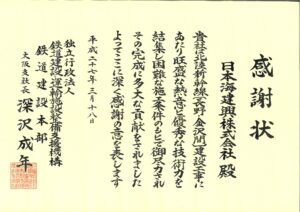 感謝状
日本海建興株式会社 殿
貴社は北陸新幹線(長野・金沢間)建設工事に
あたり旺盛な熱意と優秀な技術力を
結集し困難な施工案件のもとで御尽力され
その完成に多大な貢献をされました
よってここに深く感謝の意を表します
平成二十七年三月十八日
独立行政法人
鉄道建設・運輸施設整備支援機構
鉄道建設本部
大阪支社長 深沢成年